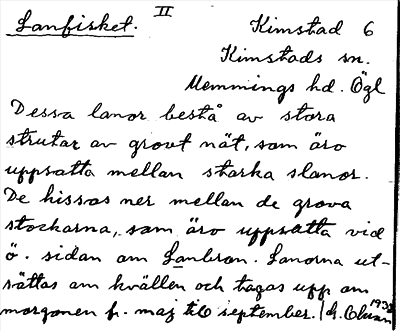 Lanfisket. II Kimstad 6
Kimstads sn.
Memmings hd. Ögl
Dessa lanor bestå av stora
strutar av grovt nät, som äro
uppsatta mellan starka slanor.
De hissas ner mellan de grova
stockarna, som äro uppsatta vid
ö. sidan om Lanbron. Lanorna ut-
sättas om kvällen och tagas upp om
morgonen fr. maj till september.
1932